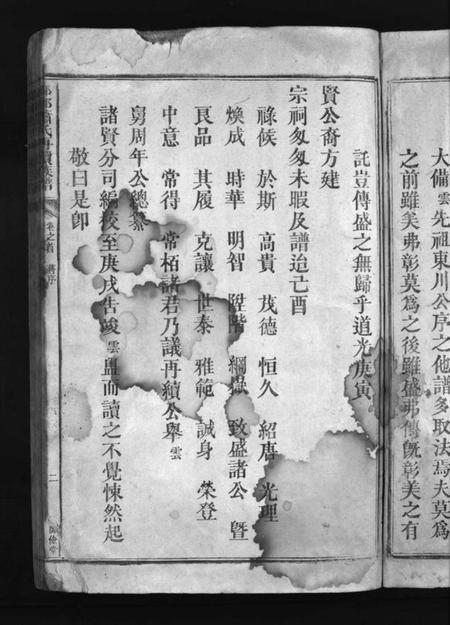 大備雲先祖東川公序之他譜多取法焉夫莫為
之前雖美弗彰莫為之後雖盛弗傳既彰美之有
託豈傳盛之無歸乎道光庚寅
賢公裔方建
宗祠匆匆未暇及譜迨己酉
祿候 於斯 高貴 茂德 恒久 紹唐 光理
煥成 時華 明智 陞階 綱嶽 致盛諸公暨
良品 其履 克讓 世泰 雅範 誠身 榮登
中意 常得 常栢諸君乃議再續公舉雲
舅周年公總纂
諸賢分司編校至庚戌告竣雲盥而讀之不覺悚然起
敬曰是即
氏
族譜
卷之首
序
二